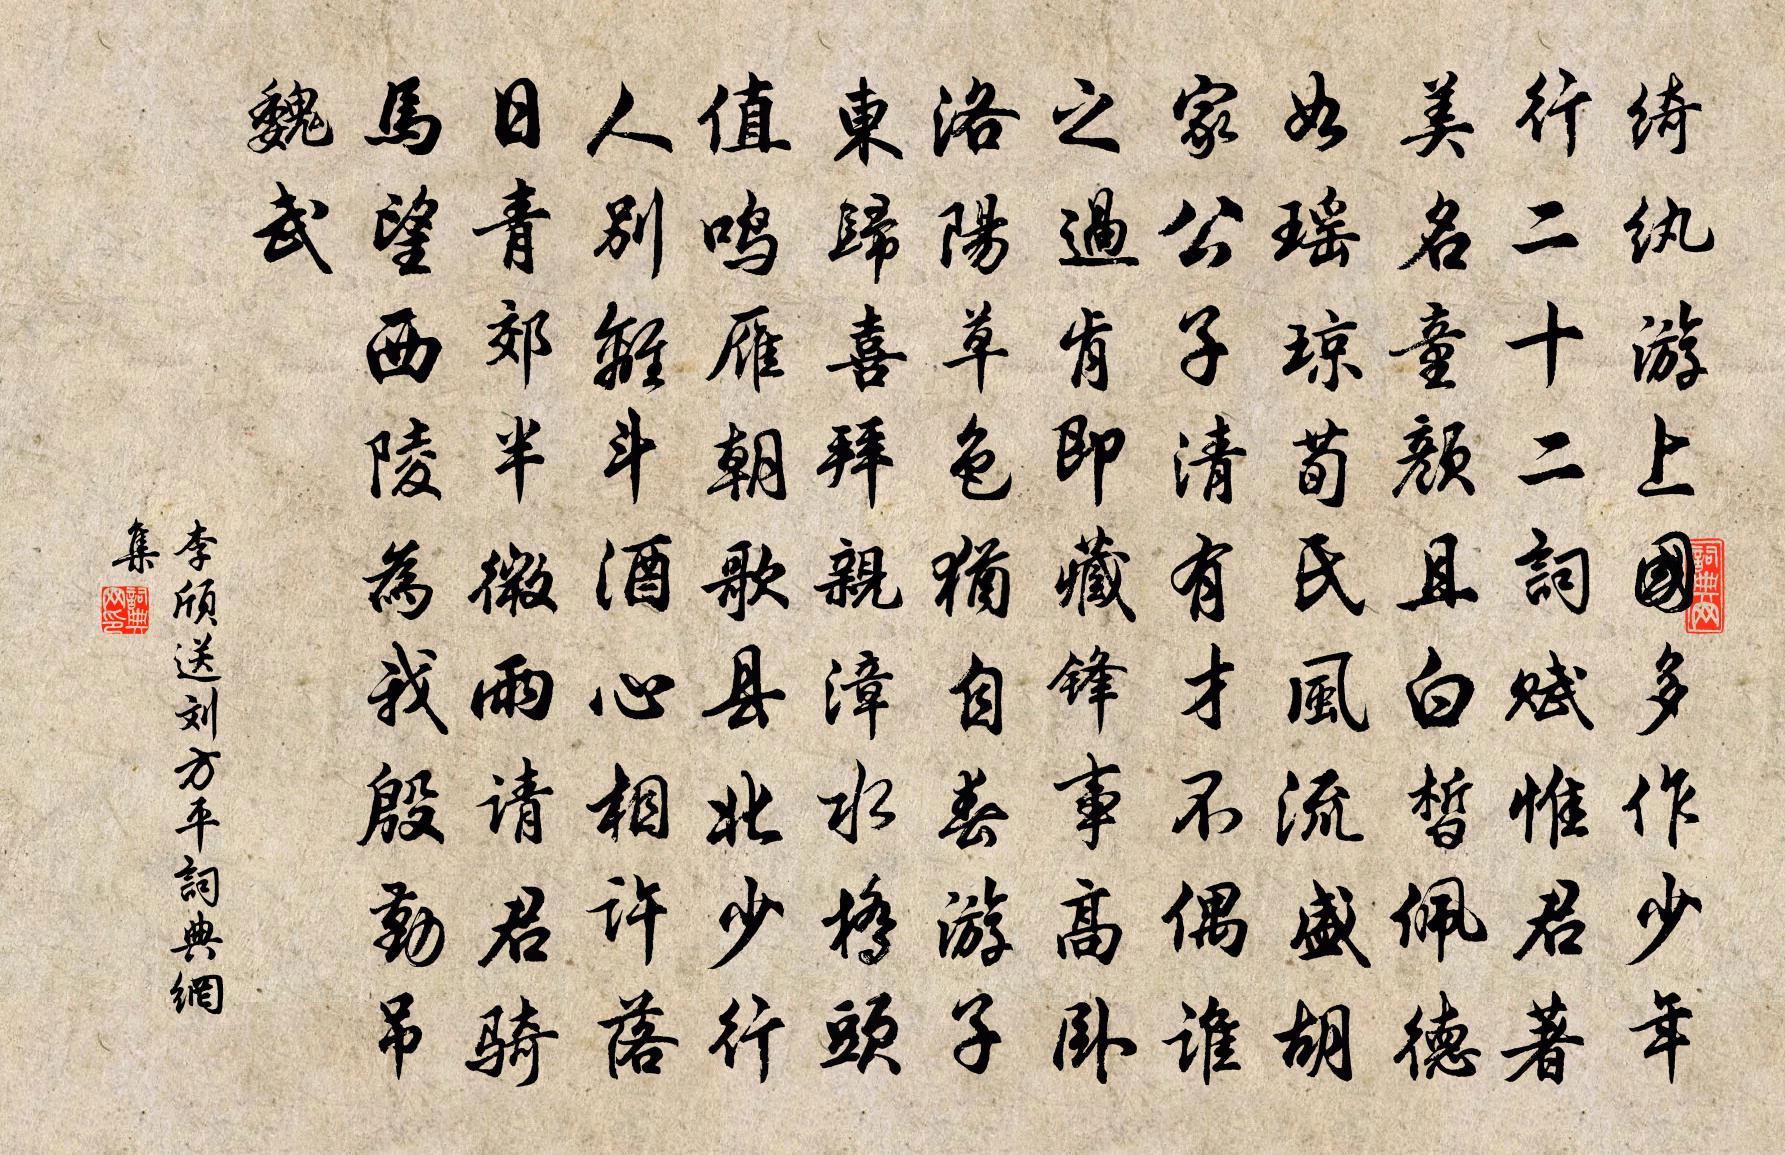 绮纨游上國多作少年
行二十二詞赋惟君著
美名童颜且白皙佩德
如瑶琼荀氏風流盛胡
家公子清有才不偶谁
之過肯即藏锋事高卧
洛陽草色猶自春游子
東歸喜拜親漳水橋頭
值鸣雁朝歌县北少行
人别離斗酒心相许落
日青郊半微雨请君骑
馬望西陵為我殷勤吊
魏武
李颀送刘方平詞典網
集
詞典网
詞典网印